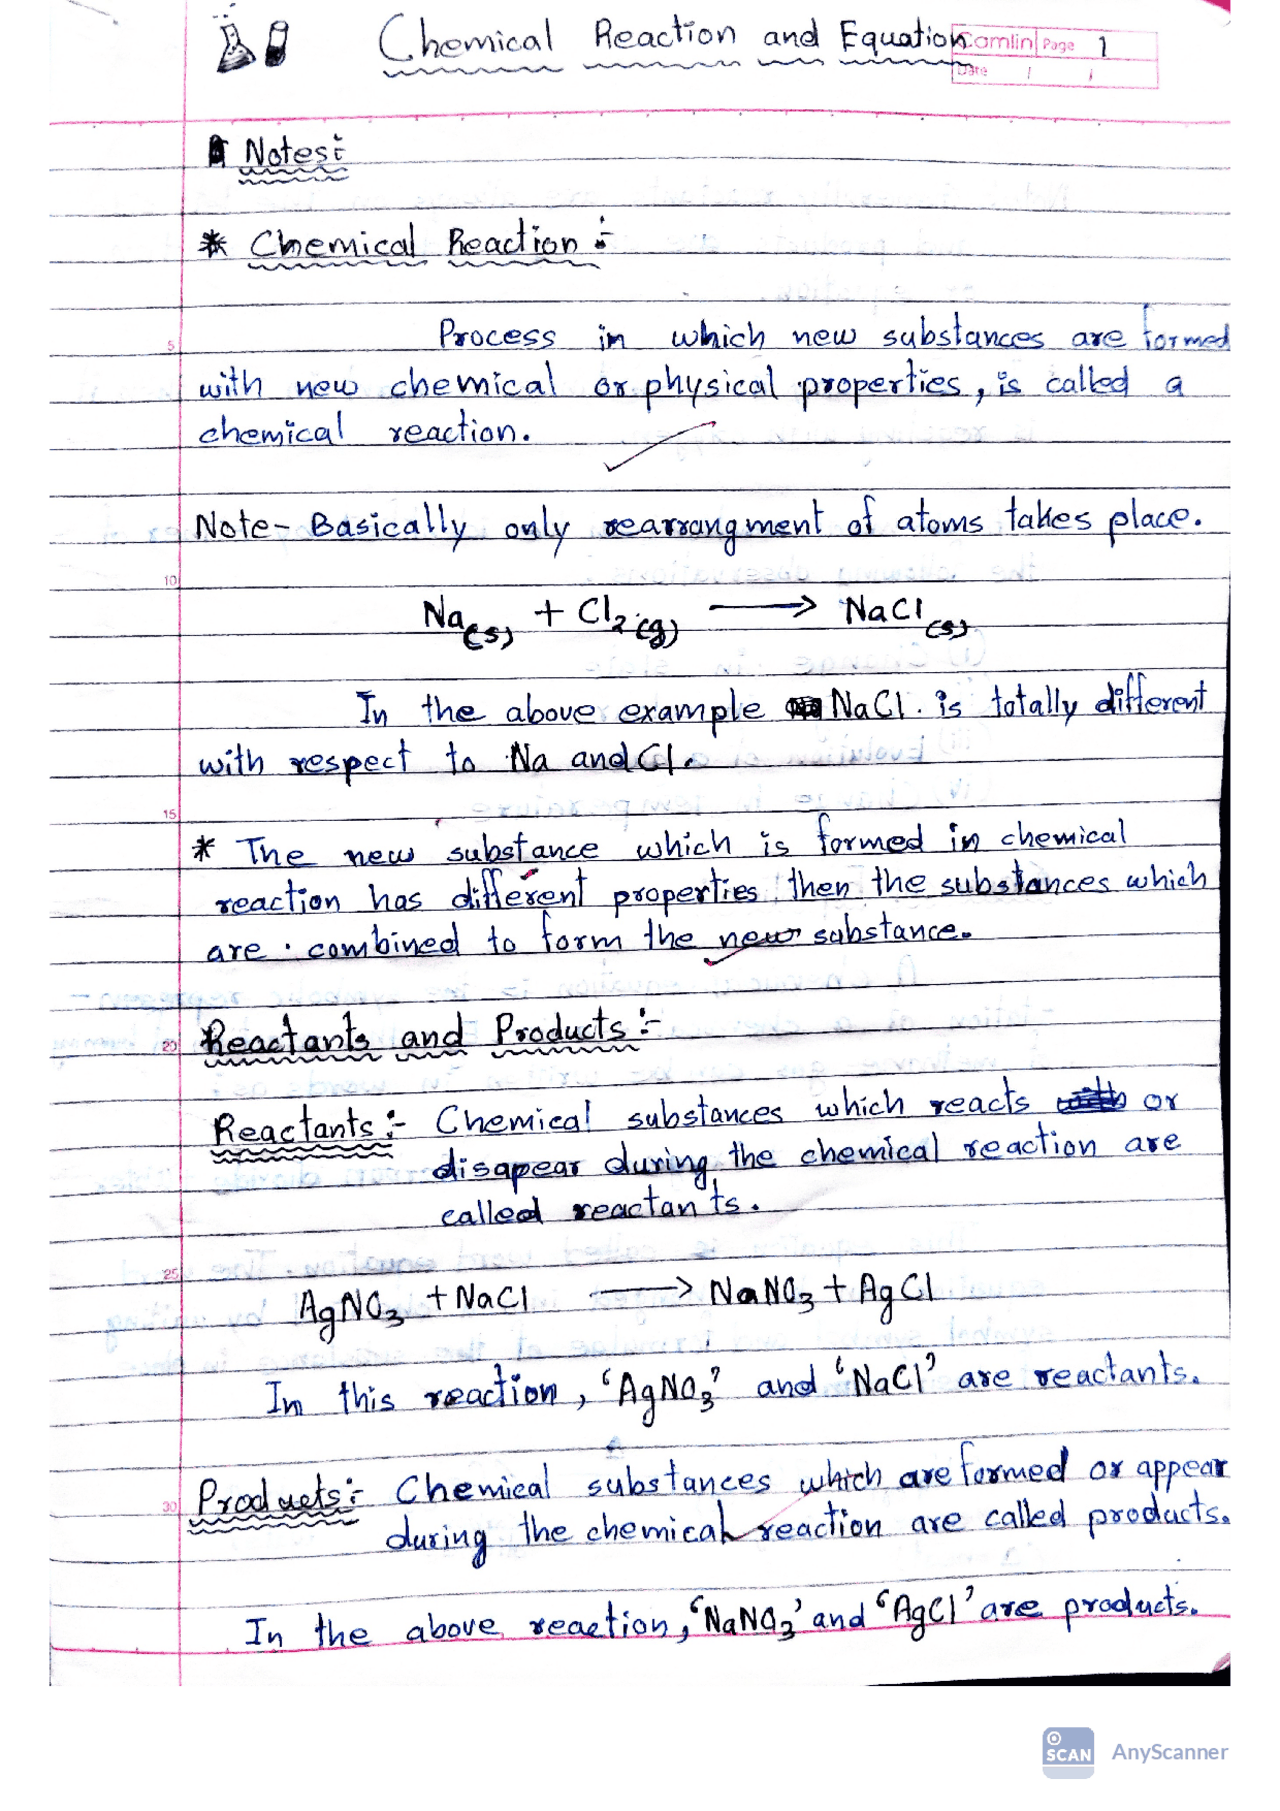 Chemical Reaction and Equation
Camlin Page 1
Date / /
Notes:-
* Chemical Reaction :-
5
Process in which new substances are formed
with new chemical or physical properties, is called a
chemical reaction.
Note - Basically only rearrangment of atoms takes place.
10
Na(s) + Cl2(g) → NaCl(s)
In the above example NaCl. is totally different
with respect to Na and Cl.
15
* The new substance which is formed in chemical
reaction has different properties then the substances which
are combined to form the new substance.
20 Reactants and Products :-
Reactants :- Chemical substances which reacts or
disapear during the chemical reaction are
called reactants.
25
AgNO3 + NaCl → NaNO3 + AgCl
In this reaction, 'AgNO3' and 'NaCl' are reactants.
30 Products :- Chemical substances which are formed or appear
during the chemical reaction are called products.
In the above reaction, 'NaNO3' and 'AgCl' are products.
SCAN AnyScanner